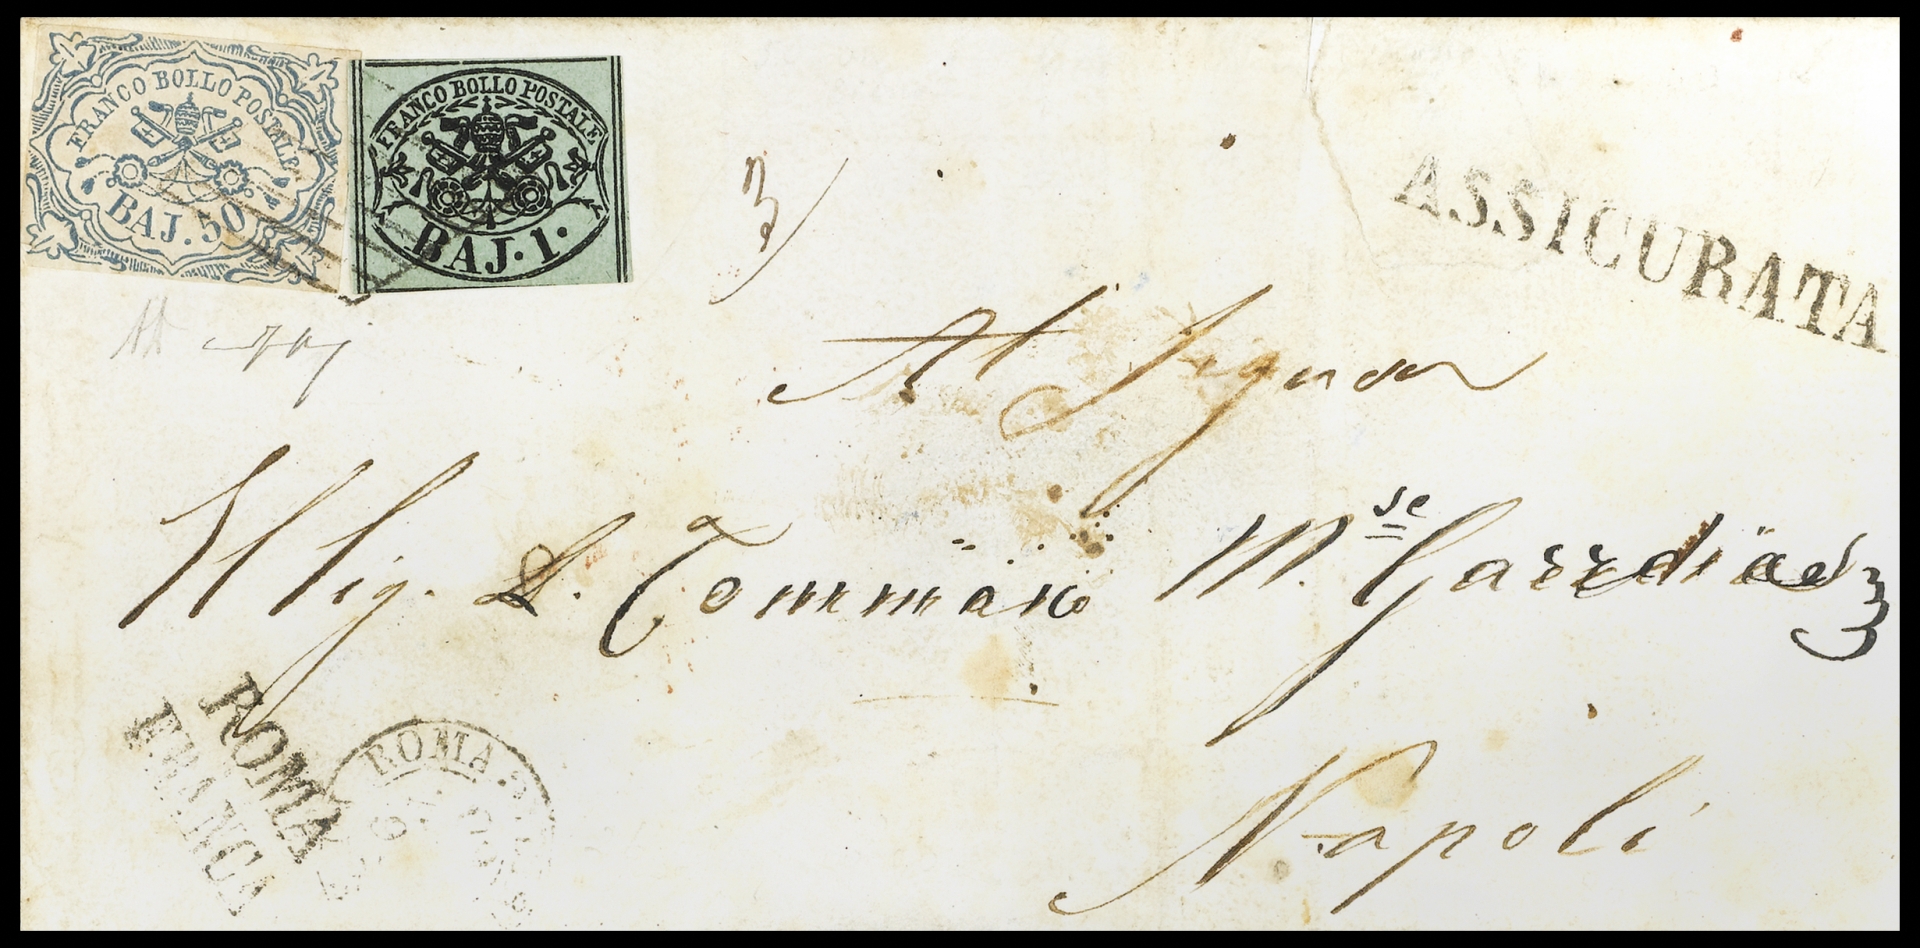 FRANCO BOLLO POSTALE
BAJ. 50
FRANCO BOLLO POSTALE
BAJ. 1.
3
ASSICURATA
Al Signor
Il Sig. D. Tommaso M.se
Napoli
ROMA
FRANCA
ROMA